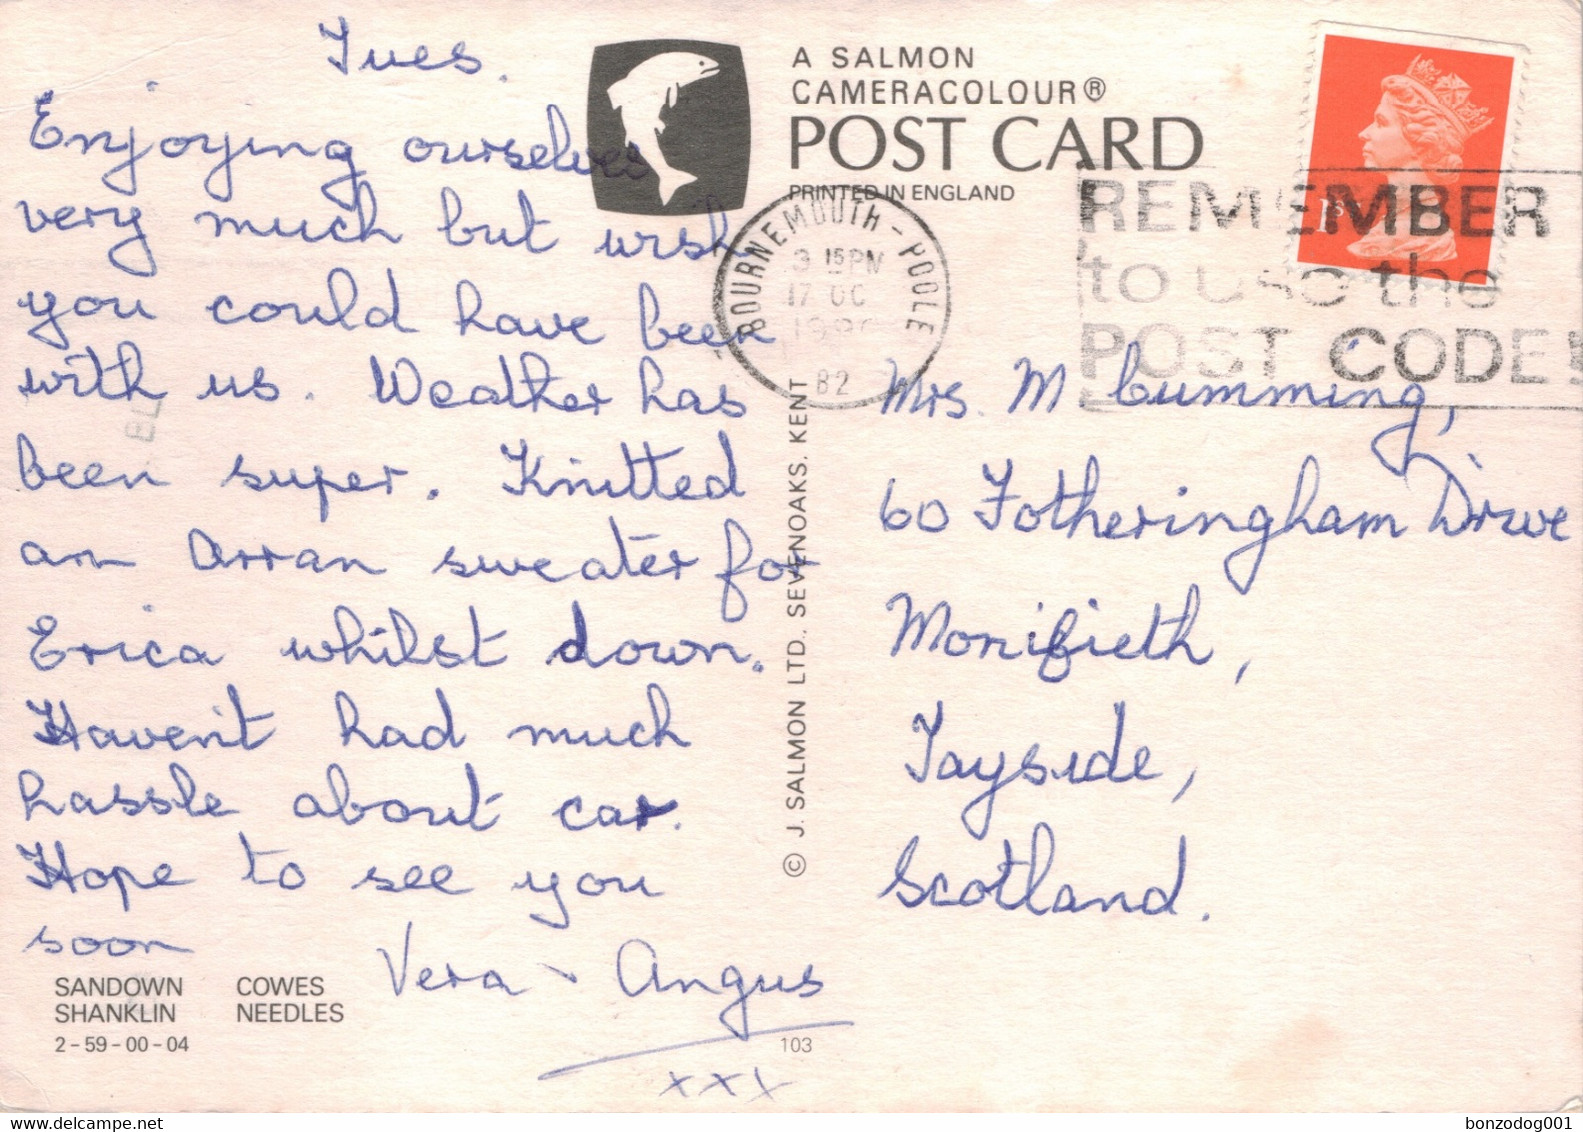 Tues.
Enjoying ourselves
very much but wish
you could have been
with us. Weather has
been super. Knitted
an Arran sweater for
Erica whilst down.
Haven't had much
hassle about car.
Hope to see you
soon
Vera + Angus
xxx
SANDOWN COWES
SHANKLIN NEEDLES
2-59-00-04
103
A SALMON
CAMERACOLOUR®
POST CARD
PRINTED IN ENGLAND
© J. SALMON LTD., SEVENOAKS, KENT
BOURNEMOUTH - POOLE
3 15 PM
17 OC
82
1st
REMEMBER
to use the
POST CODE
Mrs. M Cumming,
60 Fotheringham Drive
Monifieth,
Tayside,
Scotland.
delcampe.net
bonzodog001